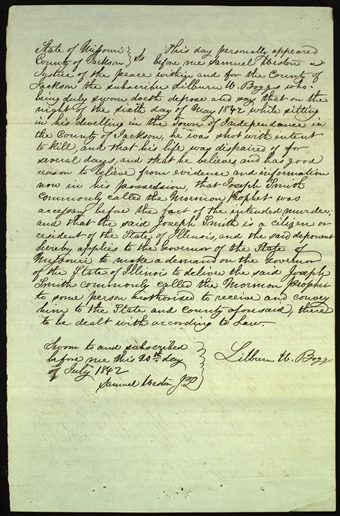 State of Missouri } This day personally appeared
County of Jackson } Ss before me Samuel Weston a
Justice of the peace within and for the County of
Jackson the subscriber Lilburn W. Boggs who
being duly sworn doth depose and say that on the
night of the sixth day of May 1842 while sitting
in his dwelling in the town of Independence in
the County of Jackson, he was shot with intent
to kill, and that his life was dispaired of for
several days, and that he believes and has good
reason to believe from evidence and information
now in his possession, that Joseph Smith
commonly called the Mormon Prophet was
accessary before the fact of the intended murder;
and that the said Joseph Smith is a citizen or
resident of the State of Illinois, and the said deponent
hereby applies to the Governor of the State of
Missouri to make a demand on the Governor
of the State of Illinois to deliver the said Joseph
Smith commonly called the Mormon Prophet
to some person authorised to receive and convey
him to the State and County aforesaid, there
to be dealt with according to Law.
Sworn to and subscribed
before me this 20th day } Lilburn W. Boggs
of July 1842
Samuel Weston J.P.